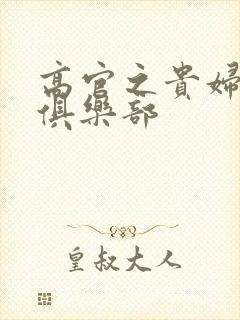 高官之貴婦
俱樂部
皇叔大人